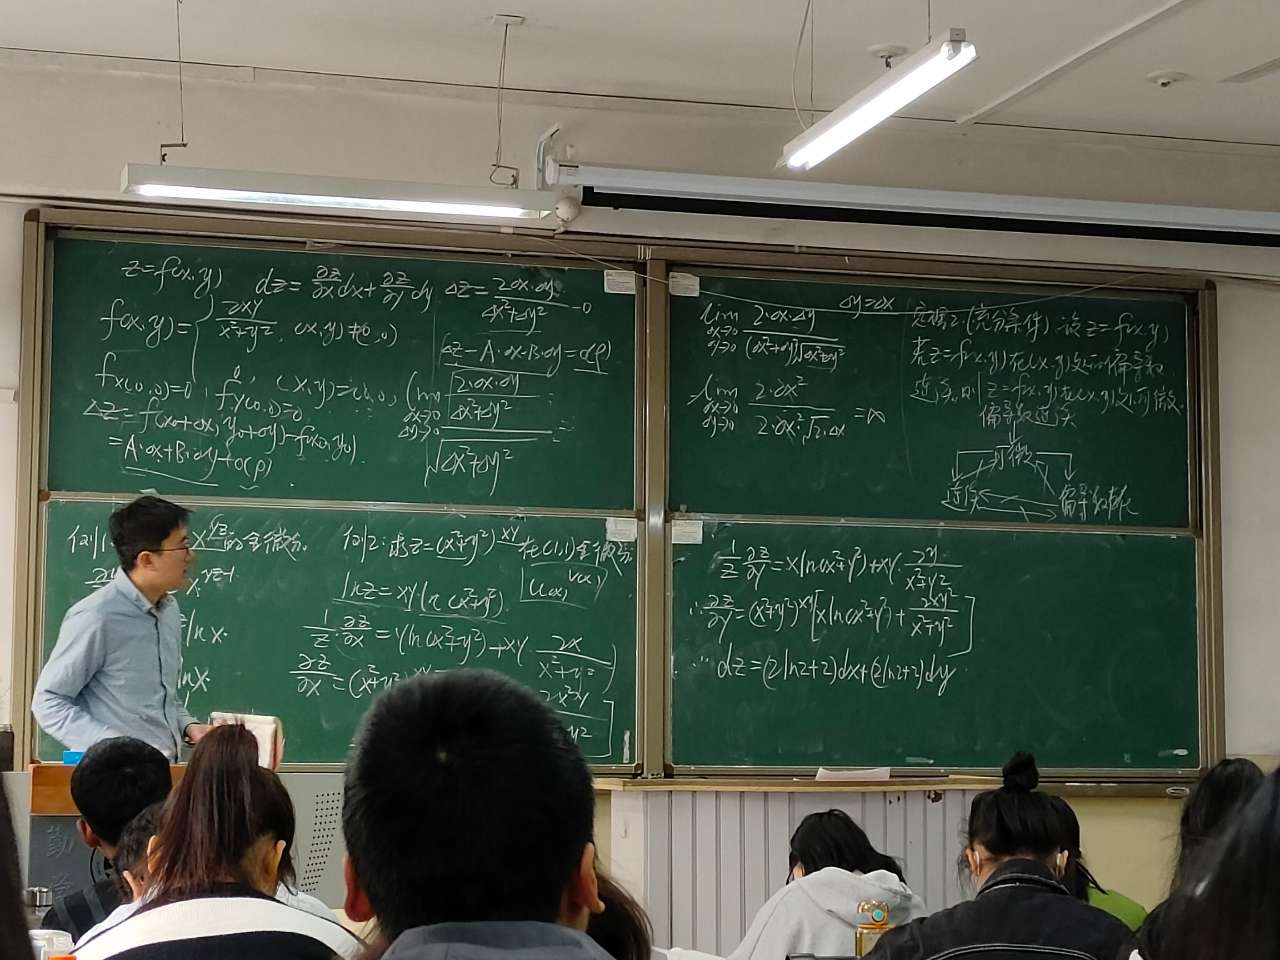 z=f(x,y) dz=∂z/∂x dx+∂z/∂y dy Δz=2Δx·Δy/(Δx²+Δy²) →0
f(x,y)={ 2xy/(x²+y²), (x,y)≠(0,0)
0, (x,y)=(0,0)
Δz-A·Δx-B·Δy=o(ρ)
fx(0,0)=0, fy(0,0)=0
Δz=f(x₀+Δx, y₀+Δy)-f(x₀,y₀)
=A·Δx+B·Δy+o(ρ)
lim Δx→0 Δy→0 (2·Δx·Δy/(Δx²+Δy²))/√(Δx²+Δy²)
Δy=Δx
lim Δx→0 Δy→0 2·Δx·Δy/((Δx²+Δy²)√(Δx²+Δy²))
lim Δx→0 Δy→0 2·Δx²/(2·Δx²·√2·Δx) =∞
定理2.(充分条件) 设z=f(x,y)
若z=f(x,y)在(x,y)处的偏导数
连续,则z=f(x,y)在(x,y)处可微.
偏导数连续
可微
连续 偏导数存在
例1 x^yz的全微分.
x^yz-1
ln x
ln x
例2:求z=(x²+y²)^xy在(1,1)全微分.
u(x)^v(x)
ln z=xy ln(x²+y²)
1/z·∂z/∂x=y ln(x²+y²)+xy·2x/(x²+y²)
∂z/∂x=(x²+y²)^xy
2x²y
1/z ∂z/∂y=x ln(x²+y²)+xy·2y/(x²+y²)
∴∂z/∂y=(x²+y²)^xy[x ln(x²+y²)+2xy²/(x²+y²)]
∴dz=(2ln2+2)dx+(2ln2+2)dy
勤